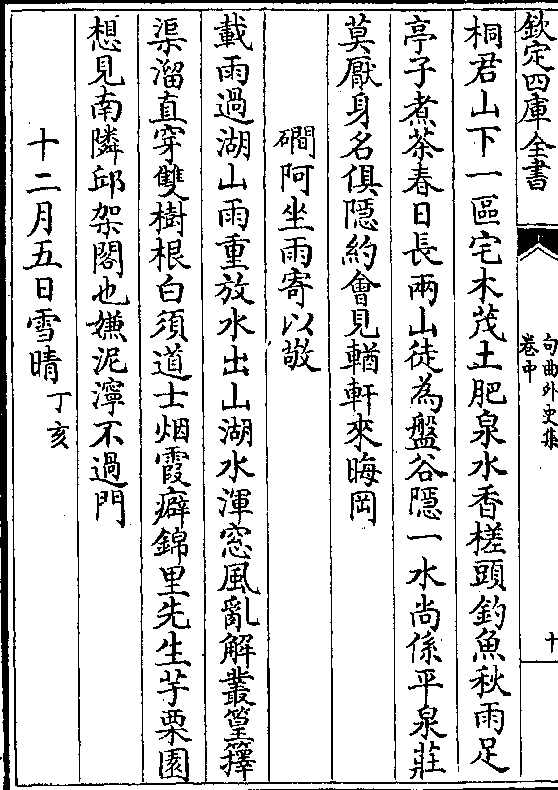 欽定四庫全書
句曲外史集
卷中
十
桐君山下一區宅木茂土肥泉水香槎頭釣魚秋雨足
亭子煮茶春日長兩山徒為盤谷隱一水尚係平泉莊
莫厭身名俱隱約會見輶軒來晦岡
磵阿坐雨寄以敬
載雨過湖山雨重放水出山湖水渾窓風亂解叢篁籜
渠溜直穿雙樹根白須道士烟霞癖錦里先生芋栗園
想見南隣邱架閣也嫌泥濘不過門
十二月五日雪晴丁亥